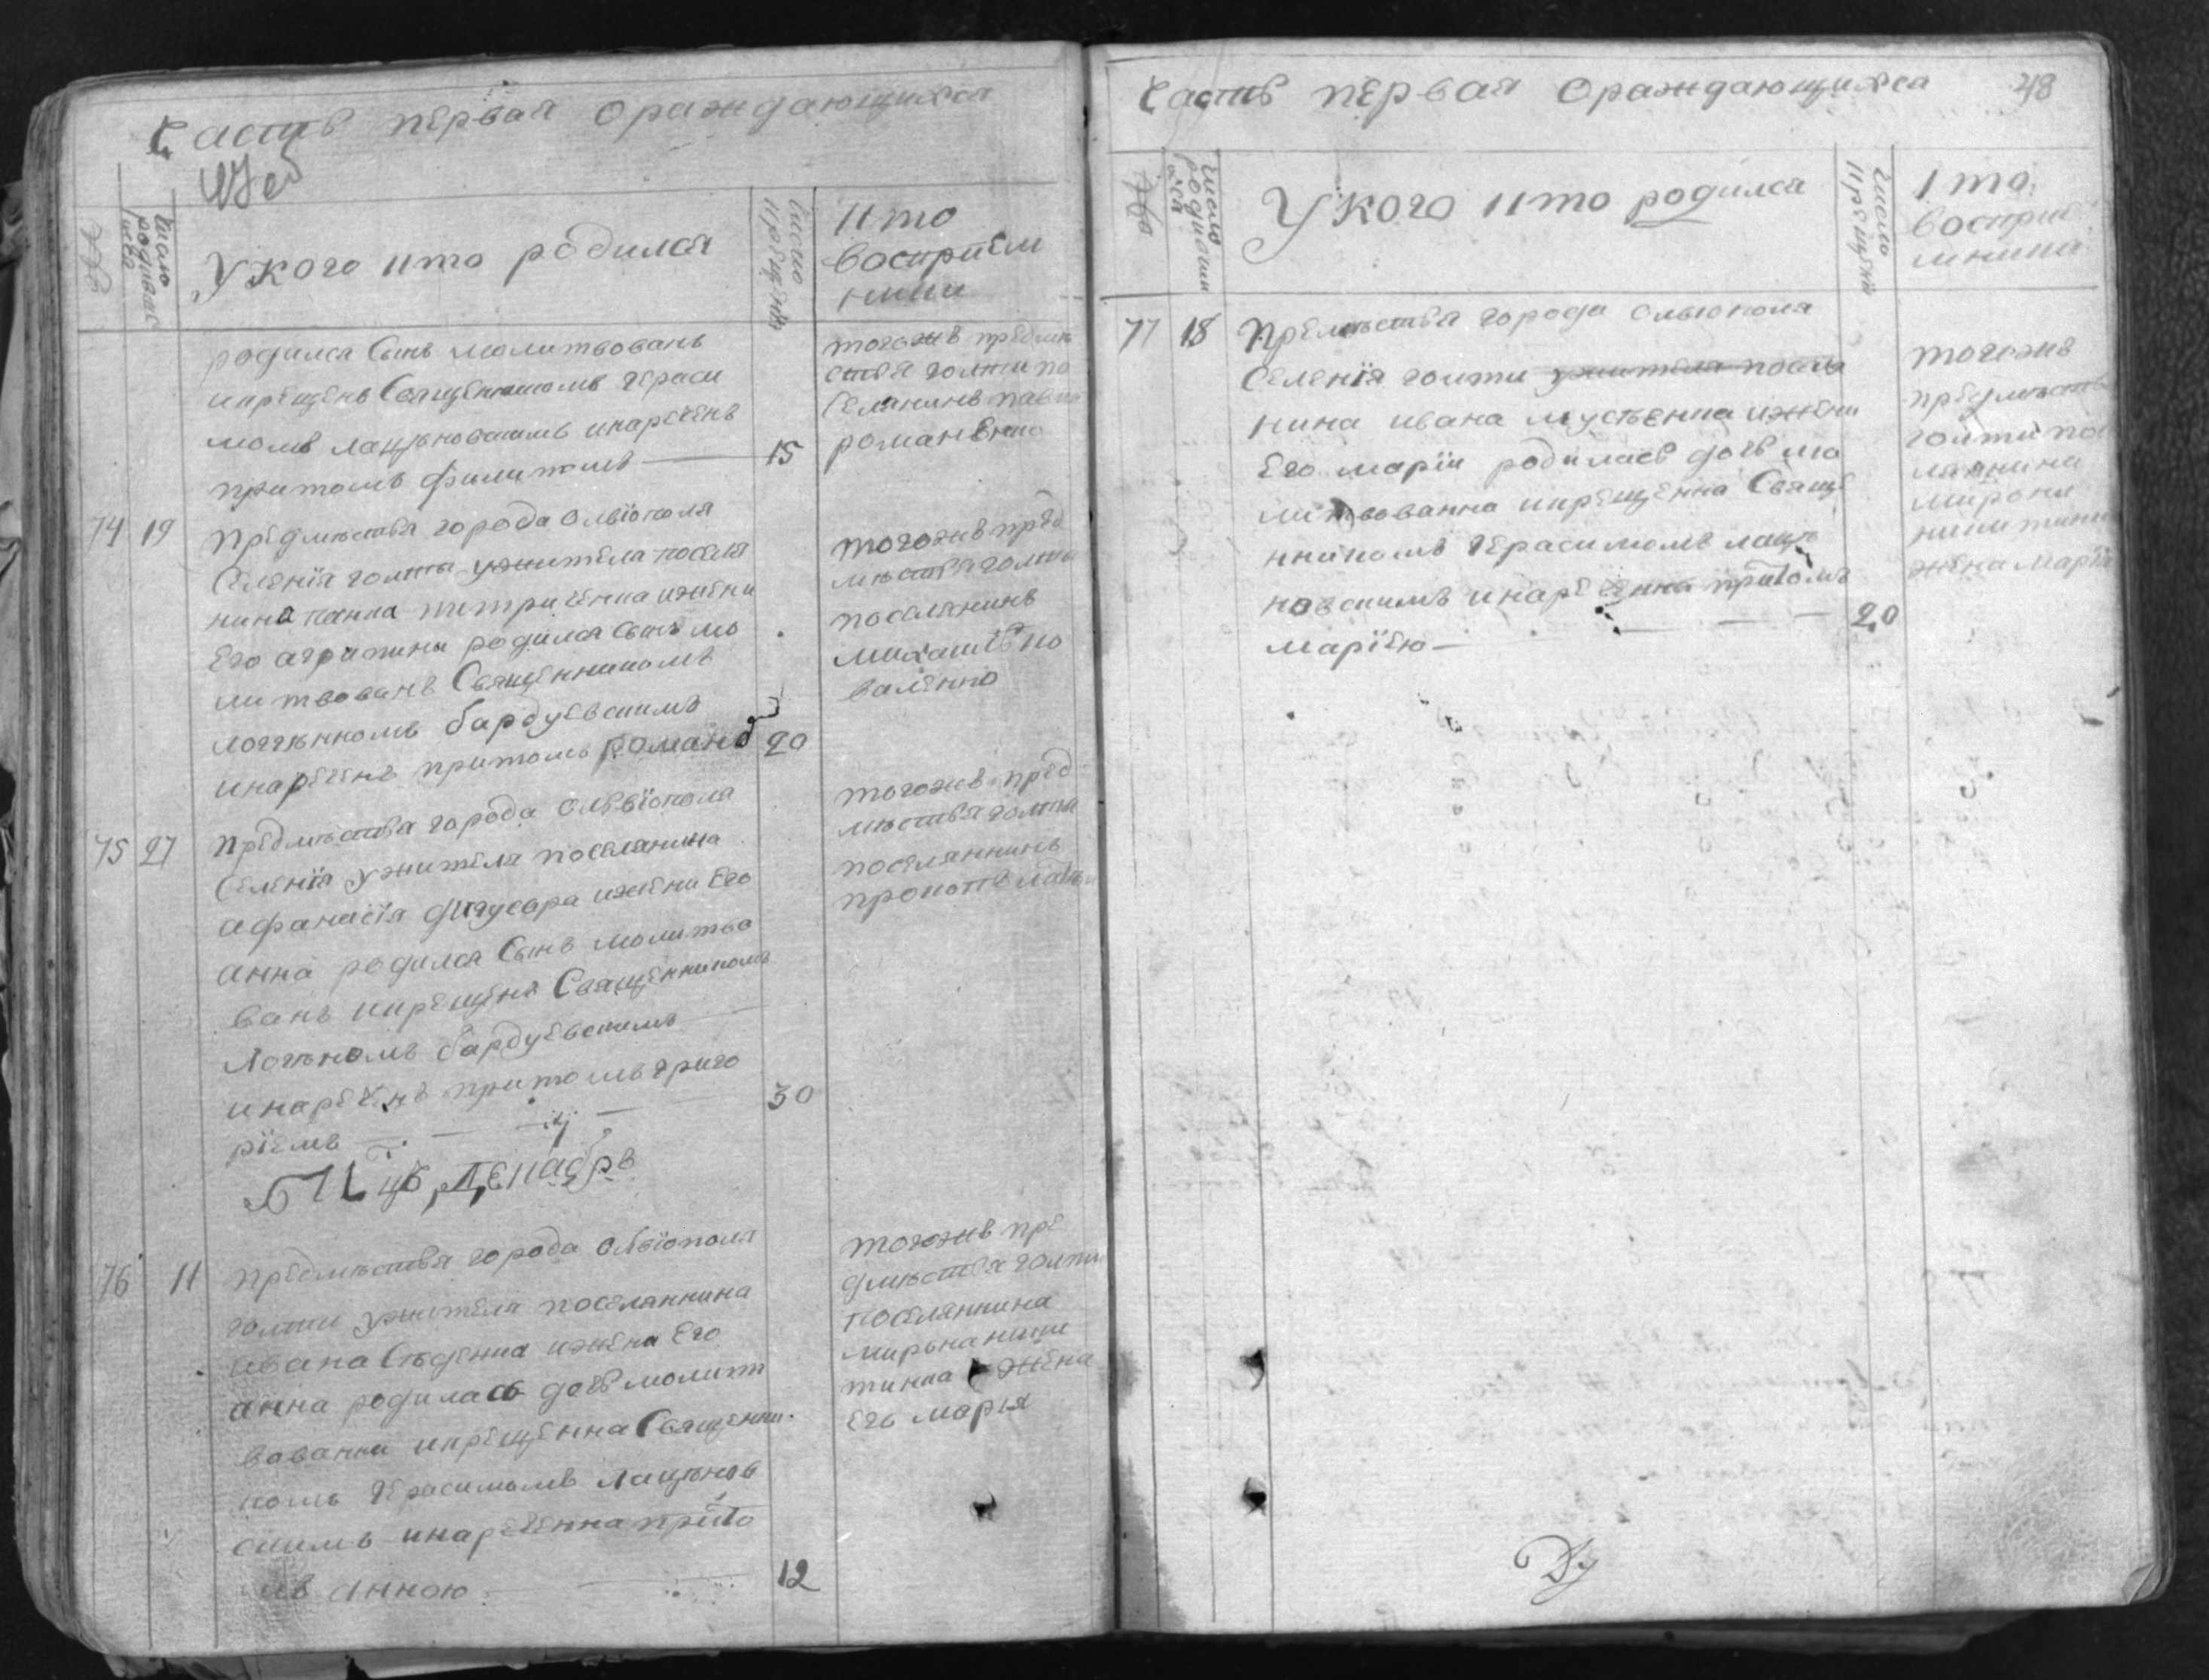 Часть первая ораждающихся
№
Число родившихся
У кого кто родился
Число крещения
кто
восприем
ники
родился Сынъ молитвованъ
икрещенъ Священникомъ гераси
момъ лацѣновскимъ инареченъ
притомъ филипомъ
15
тогожъ предмѣ
стья голти по
селянинъ павло
романенко
74 19
Предмѣстья города олвіополя
Селенія голты ужителя поселя
нина
Его агрипини родился Сынъ мо
литвованъ Священникомъ
логгѣнномъ бардуевскимъ
инареченъ притомъ романо
20
тогожъ пред
мѣстья голти
поселянинъ
михаилъ ко
валенко
75 27
Предмѣстья города олвіополя
Селенія ужителя поселянина
афанасія ижени Его
анна родился Сынъ молитво
ванъ икрещенъ Священникомъ
Логѣномъ бардуевскимъ
инареченъ притомъ григо
ріемъ
30
тогожъ пред
мѣстья голти
поселяннинъ
прокопъ
Мцъ Декабрь
76 11
Предмѣстья города олвіополя
голти ужителя поселяннина
ивана ижена Его
анна родилась дочь молит
вованна икрещенна Священни
комъ герасимомъ лацѣнов
скимъ инареченна прито
мъ анною
12
тогожъ пре
дмѣстья голти
поселяннина
мирона ники
тинка жена
Его марья
Часть первая ораждающихся
48
№
Число родившихся
У кого кто родился
Число крещения
кто
воспріе
мники
77 18
Предмѣстья города олвіополя
Селенія голти ужителя посля
нина ивана мустѣнка ижени
Его маріи родилась дочь мо
литвованна икрещенна Свяще
нникомъ герасимомъ лацѣ
новскимъ инареченна притомъ
маріею
20
тогожъ
предмѣсть
голти пос
ляннина
мирона
никитина
жена марія